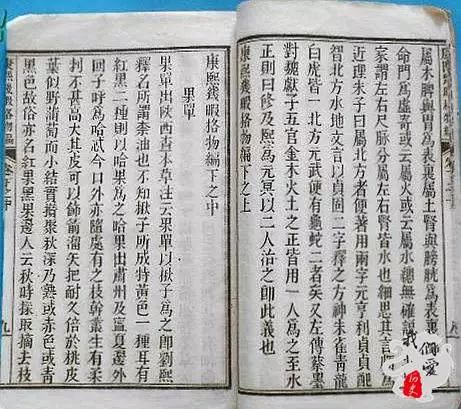 屬木脾與胃為表裏屬土腎與膀胱為表裏
命門為虛竒或云屬火或云屬水總無確
家謂左右尺脉分屬左右腎皆水也細思其言
近理朱子曰屬北方者便著用兩字元亨利貞貞配
智北方水地文言以貞固二字釋之方神朱雀青龍
白虎皆一北方元武便有龜蛇二者矣又左傳蔡墨
對魏獻子五官木火土之正皆用一人為之至水
正則曰修及熙為元冥以二人治之即此義也
康熙幾暇格物編下之上
康熙幾暇格物編下之中
果單
果單出陝西查本草注云果單以楸子為之即劉熙
釋名所謂柰油也不知楸子所成特黃色一種耳有
紅黑二種則以哈果為之哈果出肅州及寧夏邊外
回子呼為哈忒今口外亦隨處有之枝幹叢生有類
不甚高大其皮可以飾箭溜矢把耐久倍於桃皮
葉似野蒲萄而小結實攢聚秋深乃熟或赤色或青
黑色故俗亦名紅果黑果邊人云秋時採取摘去枝
康熙幾暇格物編 卷下之中
九
我們愛
历史